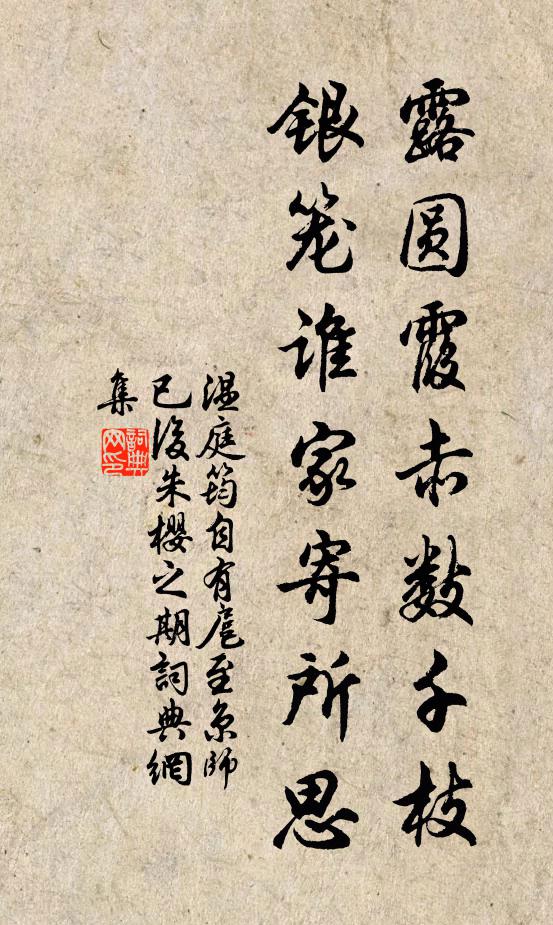 露圆霞赤数千枝
银笼谁家寄所思
温庭筠自有扈至京师
已後朱櫻之期詞典網
集
詞典
网印